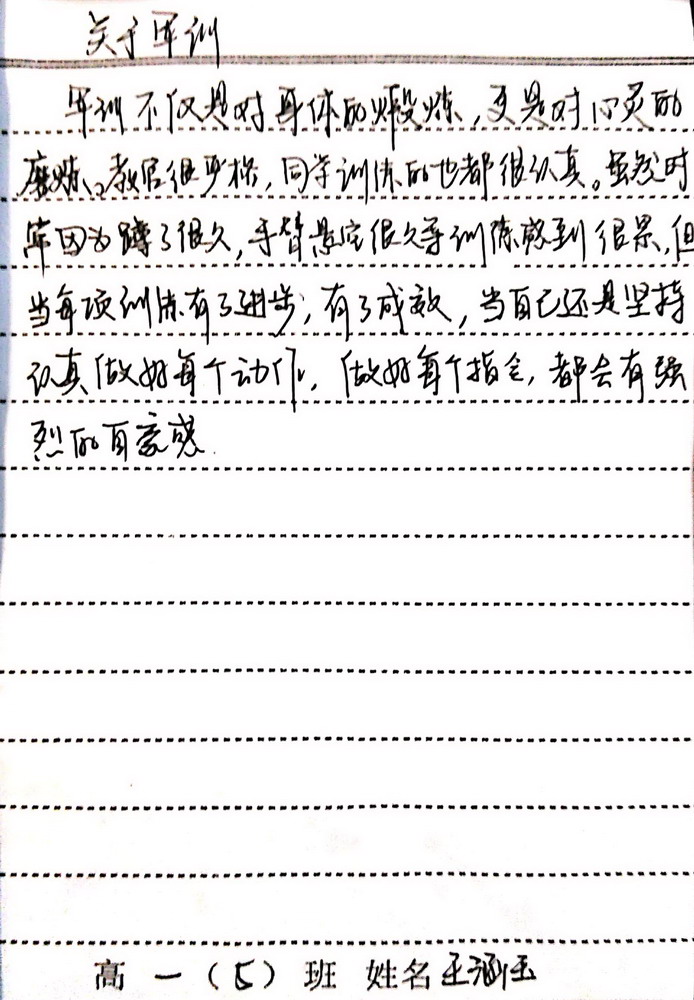 关于军训
军训不仅是对身体的煅炼，更是对心灵的
磨炼。教官很严格，同学训练的也都很认真。虽然时
常因为蹲了很久，手臂悬空很久等训练感到很累，但
当每项训练有了进步，有了成效，当自己还是坚持
认真做好每个动作，做好每个指令，都会有强
烈的自豪感.
高一（5）班 姓名王涵玉